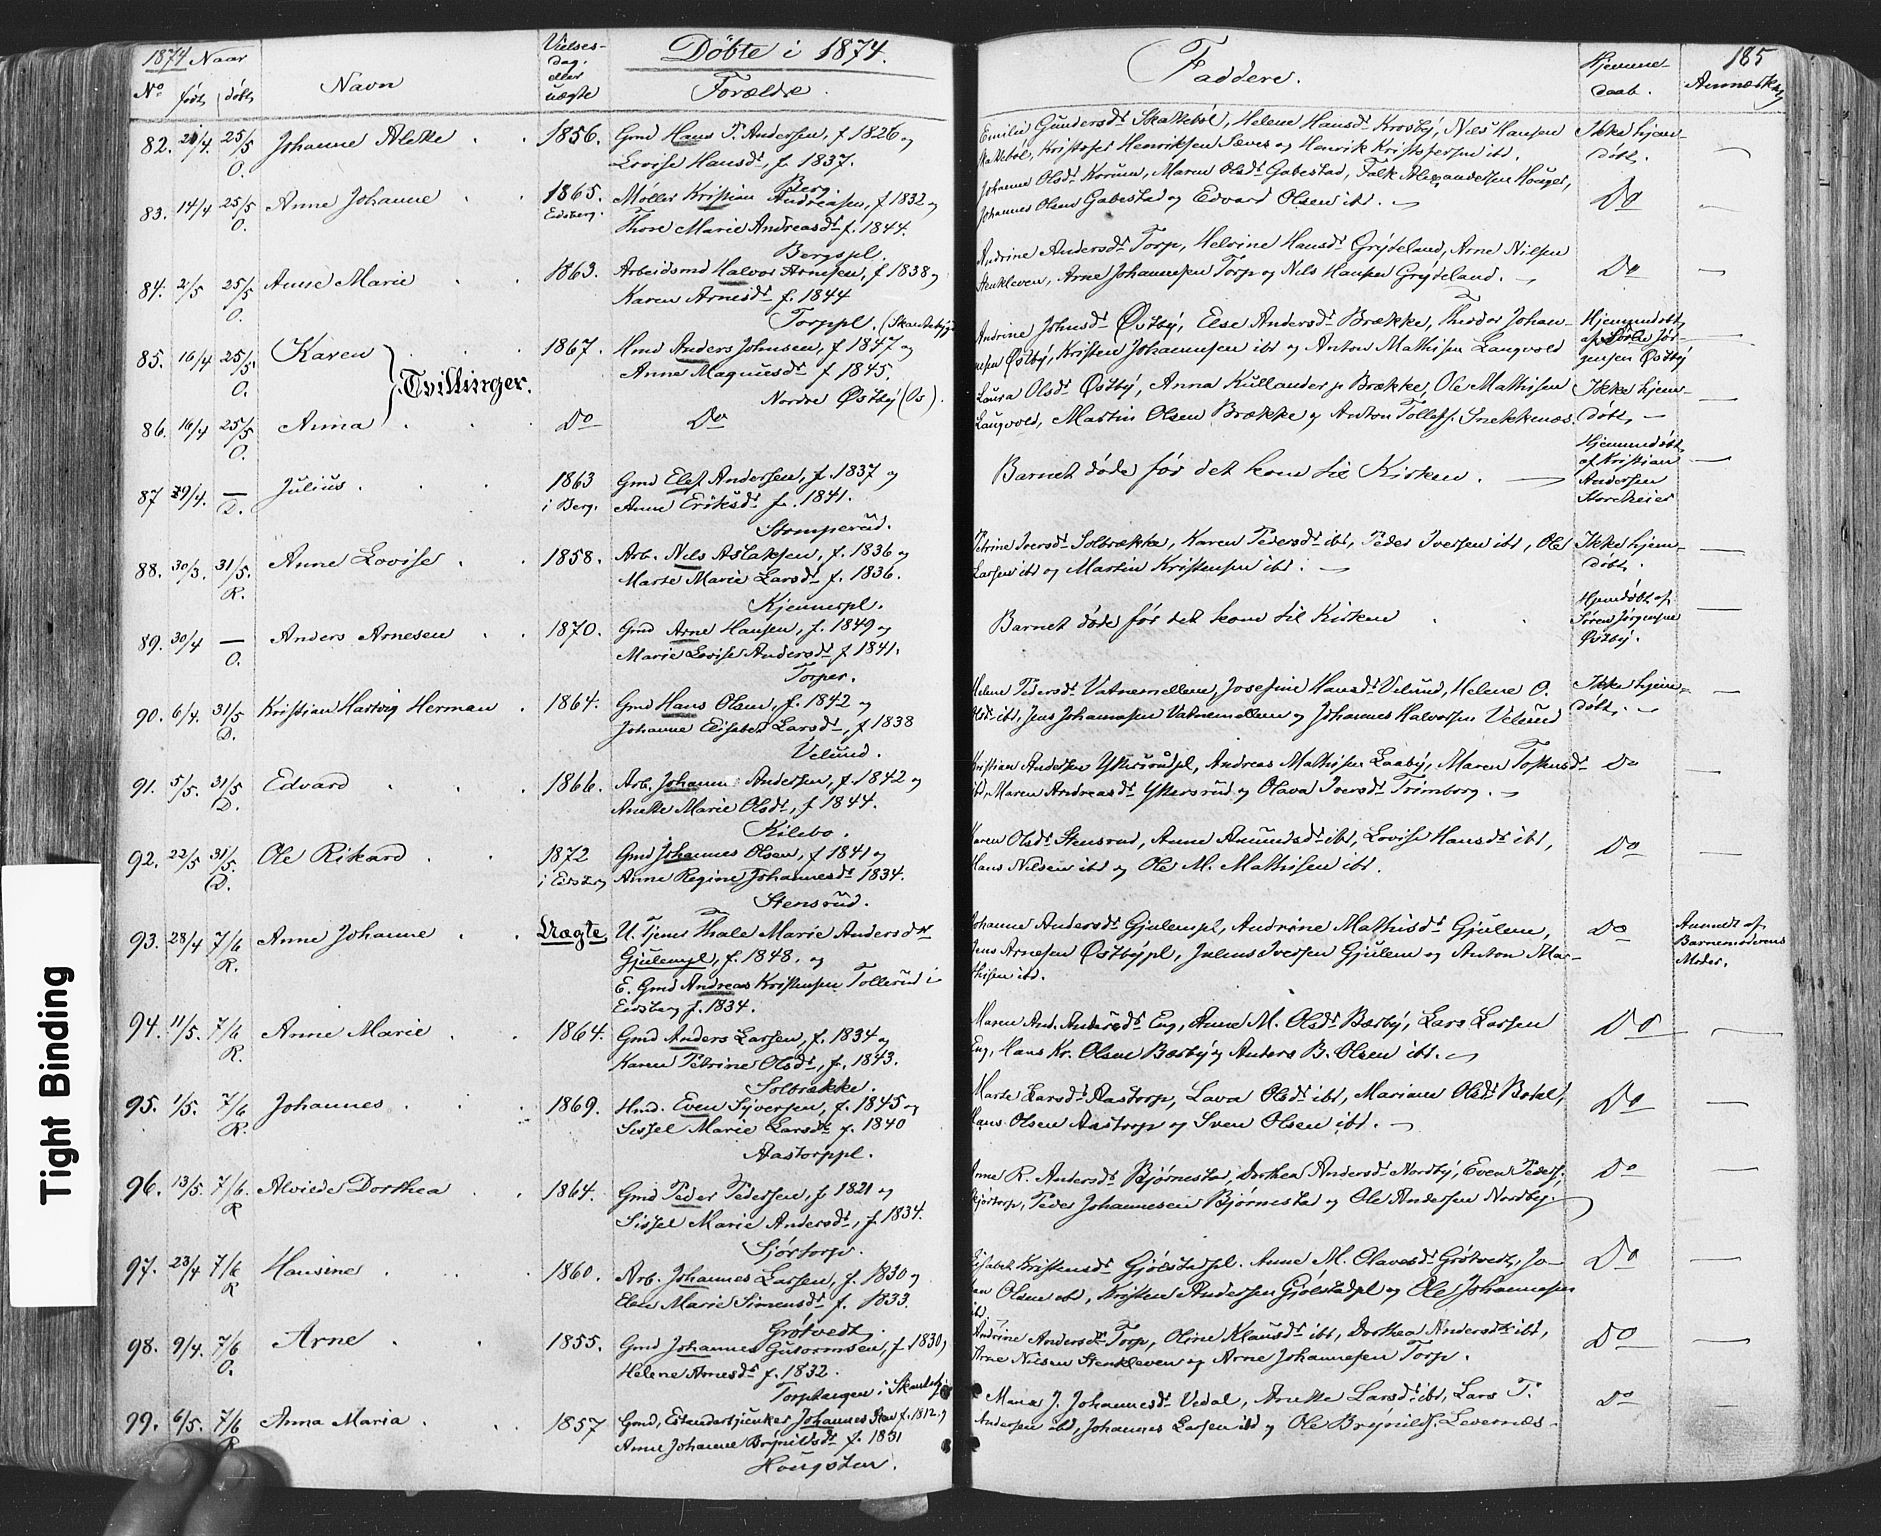 1874 Naar
No født døbt
Navn
Vielses-
dag.
eller
uægte
Døbte i 1874.
Forældre.
82. 21/4. 25/5 O. Johanne Alette 1856. Gmd Hans P. Andersen, f. 1826 og
Lovise Hansdr, f. 1837.
Berg.
83. 14/4 25/5 O. Anne Johanne 1865. Eidsberg. Møller Kristian Andreasen, f 1832 og
Thore Marie Andreasdr f. 1844.
Bergspl.
84. 2/5 25/5 O. Anne Marie 1863. Arbeidsmd Halvor Arnesen, f 1838 og
Karen Arnesdr f. 1844
Torppl. (Skautebygd
85. 16/4 25/5 O. Karen 1867. Hmd Anders Johnsen, f 1847 og
Tvillinger.
Anne Magnusdr f 1845.
Nordre Østby (Os).
86. 16/4 25/5 O. Anna Do Do
87 29/4. — D. Julius. 1863 i Berg. Gmd Elef Andersen, f. 1837 og
Anne Eriksdr f. 1841.
Stomperud.
88. 30/3. 31/5. R. Anne Lovise 1858. Arb. Nils Aslaksen, f. 1836 og
Marte Marie Larsdr f. 1836.
Kjennerpl.
89. 30/4 — O. Anders Arnesen 1870. Gmd Arne Hansen, f. 1849 og
Marie Lovise Andersdr f 1841.
Torper.
90. 6/4. 31/5 D. Kristian Hartvig Herman 1864. Gmd Hans Olsen, f. 1842 og
Johanne Elisabet Larsdr, f 1838
Velund.
91. 5/5. 31/5 D. Edvard 1866. Arb. Johannes Andersen, f. 1842 og
Anette Marie Olsdr, f. 1844.
Kilebo.
92. 22/5 31/5. D. Ole Rikard 1872 i Eidsberg Gmd Johannes Olsen, f 1841 og
Anne Regine Johannesdr 1834.
Stensrud.
93. 28/4 7/6 R. Anne Johanne Uægte U. Tjener Thale Marie Andersdtr
Gjulempl, f. 1848. og
E. Gmd Andreas Kristensen Tollerud i
Eidsberg f. 1834.
94. 11/5. 7/6 R. Anne Marie 1864. Gmd Anders Larsen, f. 1834 og
Karen Petrine Olsdr, f. 1843.
Solbrække.
95. 1/5. 7/6 R. Johannes 1869. Hmd. Even Syversen, f. 1845 og
Sissel Marie Larsdr f. 1840
Aastorppl.
96. 13/5. 7/6. R Alvilde Dorthea 1864. Gmd Peder Pedersen, f 1821 og
Sissel Marie Andersdr, f. 1834.
Sjørtorp.
97. 23/4 7/6 R Hansine 1860. Arb. Johannes Larsen, f. 1830 og
Elen Marie Simensdr f. 1833.
Grøtvedt.
98. 9/4. 7/6 O. Arne 1855. Gmd Johannes Gutormsen, f. 1830,
Helene Arnesdr f. 1832.
Torptangen i Skauteb
99. 6/5. 7/6 R Anna Maria 1857 Gmd, Johannes f. 1812. og
Anne Johanne Brynildsdr f. 1831
Hougsten.
Faddere.
Hjemme-
daab.
185
Anmærkng
Emilie Gundersdr Skattebøl, Helene Hansdr Krosby, Nils Hansen
Skattebøl, Kristofer Henriksen Sæves og Henrik Kristofersen ibd.
Ikke hjem-
døbt.
Johanne Olsdr Korum, Maren Olsdr Gabestad, Falk Alexandersen Houger,
Johannes Olsen Gabestad og Edvard Olsen ibd.
Do
Andrine Andersdr Torp, Helvine Hansdr Grydeland, Arne Nilsen
Stenkleven, Arne Johannesen Torp og Nils Hansen Grydeland.
Do
Andrine Johnsdr Østby, Else Andersdr Brække, Theodor Johan-
nesen Østby, Kristen Johannesen ibd og Anton Mathisen Langvold
Hjemmedøbt
af Søren Jør-
gensen Østby
Laura Olsdr Østby, Anna Kullander p Brække, Ole Mathisen
Langvold, Martin Olsen Brække og Anton Tollefs. Snekkenæs.
Ikke hjem-
døbt
Barnet døde før det kom til Kirken.
Hjemmedøbt
af Kristian
Andersen
Petrine Iversdr Solbrække, Karen Pedersdr ibd, Peder Iversen ibd, Ole
Larsen ibd og Martin Kristensen ibd.
Ikke hjem-
døbt.
Barnet døde før det kom til Kirken
Hjemdøbt af
Søren Jørgensen
Østby.
Helene Pedersdr Vatnemellem, Josefine Hansdr Velund, Helene O.
Olsdr ibd, Jens Johannesen Vatnemellem og Johannes Halvorsen Velund
Ikke hjem-
døbt.
Kristian Andersen Yttersrudpl, Andreas Mathisen Laaby, Maren Tostensdr
ibd, Maren Andreasdr Yttersrud og Olava Iversdr Trømborg.
Do
Karen Olsdr Stensrud, Anne Amundsdr ibd, Lovise Hansdr ibd,
Hans Nilsen ibd og Ole M. Mathisen ibd.
Do
Johanne Andersdr Gjulempl, Andrine Mathisdr Gjulem,
Jens Arnesen Østbypl, Julius Iversen Gjulem og Anton Mat-
hisen ibd.
Do
Anmeldt af
Barnemoderens
Moder.
Maren And. Andersdr Eng, Anne M. Olsdr Bærby, Lars Larsen
Eng, Hans Kr. Olsen Bærby og Anders B. Olsen ibd.
Do
Marte Larsdr Aastorp, Lava Olsdr ibd, Mariane Olsdr Botal,
Hans Olsen Aastorp og Sven Olsen ibd.
Do
Anne R. Andersdr Bjørnestad, Dorthea Andersdr Nordby, Even Peders.
Sjørtorp, Peder Johannesen Bjørnestad og Ole Andersen Nordby.
Do
Elisabet Kristensdr Gjølstadpl. Anne M. Olavesdr Grøtvedt, Jo-
han Olsen ibd, Kristen Andersen Gjølstadpl og Ole Johannesen
ibd.
Do
Andrine Andersdtr Torp, Oline Klausdr ibd, Dorthea Andersdtr ibd,
Arne Nilsen Stenkleven og Arne Johannesen Torp.
Do
Maria J. Johannesdr Vedal, Anette Larsdr ibd, Lars T.
Andersen ibd, Johannes Larsen ibd og Ole Brynilds. Levernæs.
Do
Tight Binding